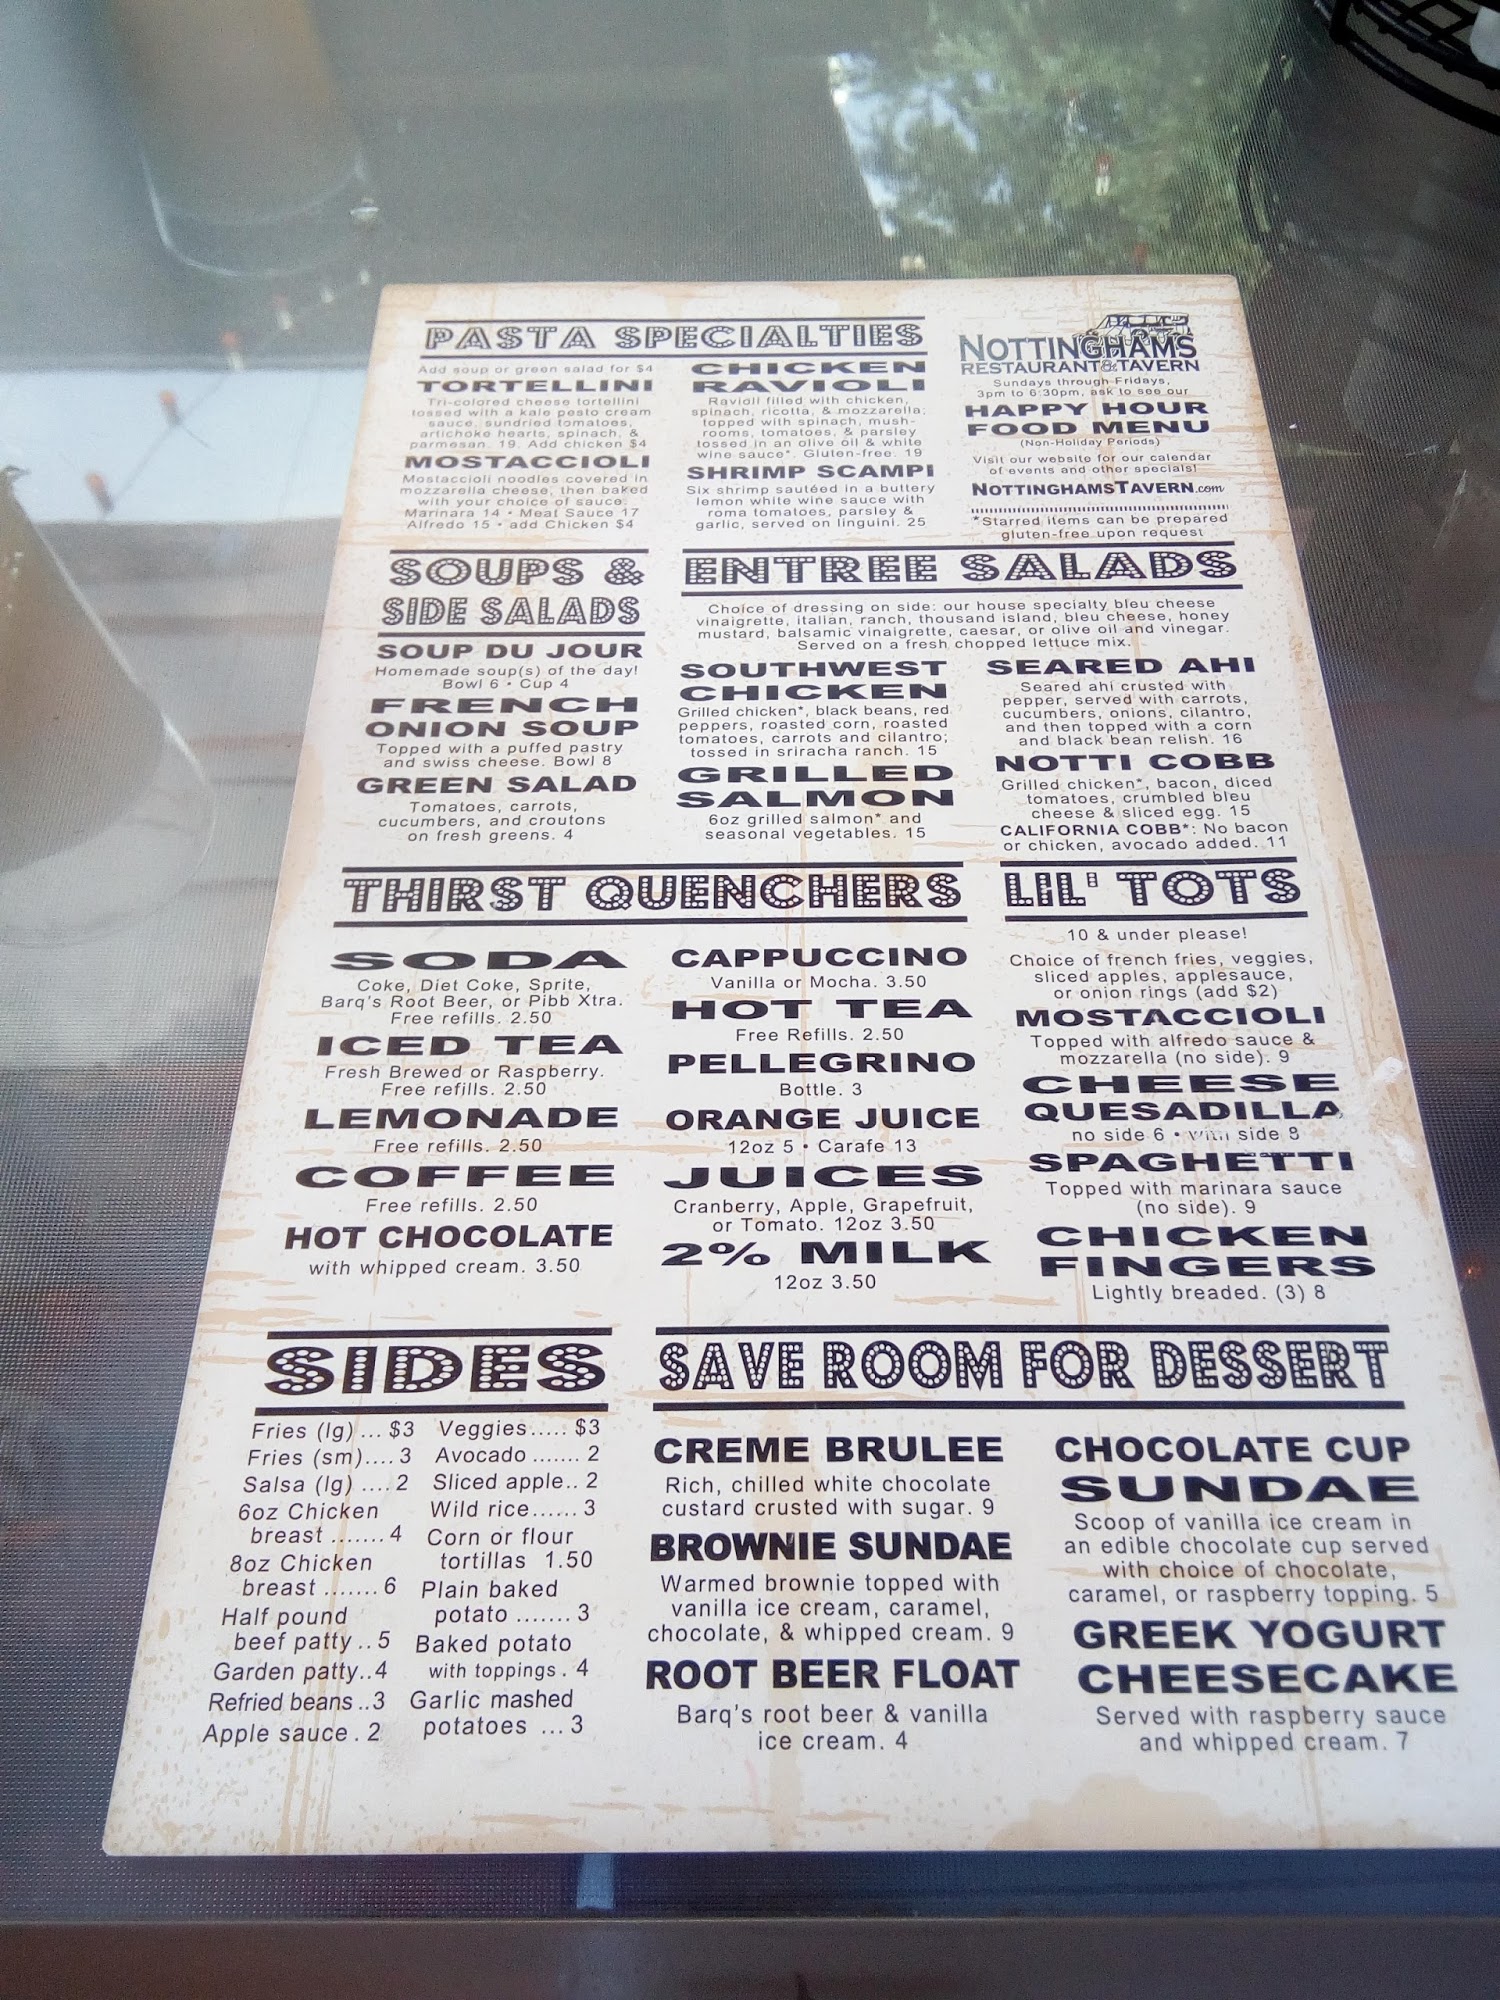 PASTA SPECIALTIES
Add soup or green salad for $4
TORTELLINI
Tri-colored cheese tortellini
tossed with a kale pesto cream
sauce, sundried tomatoes,
artichoke hearts, spinach, &
parmesan. 19. Add chicken $4
MOSTACCIOLI
Mostaccioli noodles covered in
mozzarella cheese, then baked
with your choice of sauce.
Marinara 14 • Meat Sauce 17
Alfredo 15 • add Chicken $4
CHICKEN
RAVIOLI
Ravioli filled with chicken,
spinach, ricotta, & mozzarella;
topped with spinach, mush-
rooms, tomatoes, & parsley
tossed in an olive oil & white
wine sauce*. Gluten-free. 19
SHRIMP SCAMPI
Six shrimp sautéed in a buttery
lemon white wine sauce with
roma tomatoes, parsley &
garlic, served on linguini. 25
NOTTINGHAMS
RESTAURANT & TAVERN
Sundays through Fridays,
3pm to 6:30pm, ask to see our
HAPPY HOUR
FOOD MENU
(Non-Holiday Periods)
Visit our website for our calendar
of events and other specials!
NOTTINGHAMSTAVERN.com
*Starred items can be prepared
gluten-free upon request
SOUPS &
SIDE SALADS
SOUP DU JOUR
Homemade soup(s) of the day!
Bowl 6 • Cup 4
FRENCH
ONION SOUP
Topped with a puffed pastry
and swiss cheese. Bowl 8
GREEN SALAD
Tomatoes, carrots,
cucumbers, and croutons
on fresh greens. 4
ENTREE SALADS
Choice of dressing on side: our house specialty bleu cheese
vinaigrette, italian, ranch, thousand island, bleu cheese, honey
mustard, balsamic vinaigrette, caesar, or olive oil and vinegar.
Served on a fresh chopped lettuce mix.
SOUTHWEST
CHICKEN
Grilled chicken*, black beans, red
peppers, roasted corn, roasted
tomatoes, carrots and cilantro;
tossed in sriracha ranch. 15
GRILLED
SALMON
6oz grilled salmon* and
seasonal vegetables. 15
SEARED AHI
Seared ahi crusted with
pepper, served with carrots,
cucumbers, onions, cilantro,
and then topped with a corn
and black bean relish. 16
NOTTI COBB
Grilled chicken*, bacon, diced
tomatoes, crumbled bleu
cheese & sliced egg. 15
CALIFORNIA COBB*: No bacon
or chicken, avocado added. 11
THIRST QUENCHERS
SODA
Coke, Diet Coke, Sprite,
Barq's Root Beer, or Pibb Xtra.
Free refills. 2.50
ICED TEA
Fresh Brewed or Raspberry.
Free refills. 2.50
LEMONADE
Free refills. 2.50
COFFEE
Free refills. 2.50
HOT CHOCOLATE
with whipped cream. 3.50
CAPPUCCINO
Vanilla or Mocha. 3.50
HOT TEA
Free Refills. 2.50
PELLEGRINO
Bottle. 3
ORANGE JUICE
12oz 5 • Carafe 13
JUICES
Cranberry, Apple, Grapefruit,
or Tomato. 12oz 3.50
2% MILK
12oz 3.50
LIL' TOTS
10 & under please!
Choice of french fries, veggies,
sliced apples, applesauce,
or onion rings (add $2)
MOSTACCIOLI
Topped with alfredo sauce &
mozzarella (no side). 9
CHEESE
QUESADILLA
no side 6 • with side 8
SPAGHETTI
Topped with marinara sauce
(no side). 9
CHICKEN
FINGERS
Lightly breaded. (3) 8
SIDES
Fries (lg) ... $3
Fries (sm).... 3
Salsa (lg) .... 2
6oz Chicken
breast ....... 4
8oz Chicken
breast ....... 6
Half pound
beef patty .. 5
Garden patty..4
Refried beans ..3
Apple sauce . 2
Veggies..... $3
Avocado ....... 2
Sliced apple.. 2
Wild rice...... 3
Corn or flour
tortillas 1.50
Plain baked
potato ....... 3
Baked potato
with toppings . 4
Garlic mashed
potatoes ... 3
SAVE ROOM FOR DESSERT
CREME BRULEE
Rich, chilled white chocolate
custard crusted with sugar. 9
BROWNIE SUNDAE
Warmed brownie topped with
vanilla ice cream, caramel,
chocolate, & whipped cream. 9
ROOT BEER FLOAT
Barq's root beer & vanilla
ice cream. 4
CHOCOLATE CUP
SUNDAE
Scoop of vanilla ice cream in
an edible chocolate cup served
with choice of chocolate,
caramel, or raspberry topping. 5
GREEK YOGURT
CHEESECAKE
Served with raspberry sauce
and whipped cream. 7